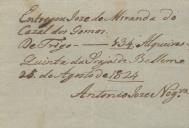 Entregou Jose de Miranda do
Cazal dos Gomos.
De Trigo — 434, Alqueires
Quinta da Praja de Bellem o
25 de Agosto de 1824
Antonio Joze Nogr.a